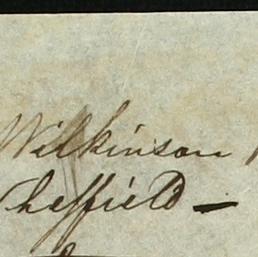 Wilkinson
Sheffield —